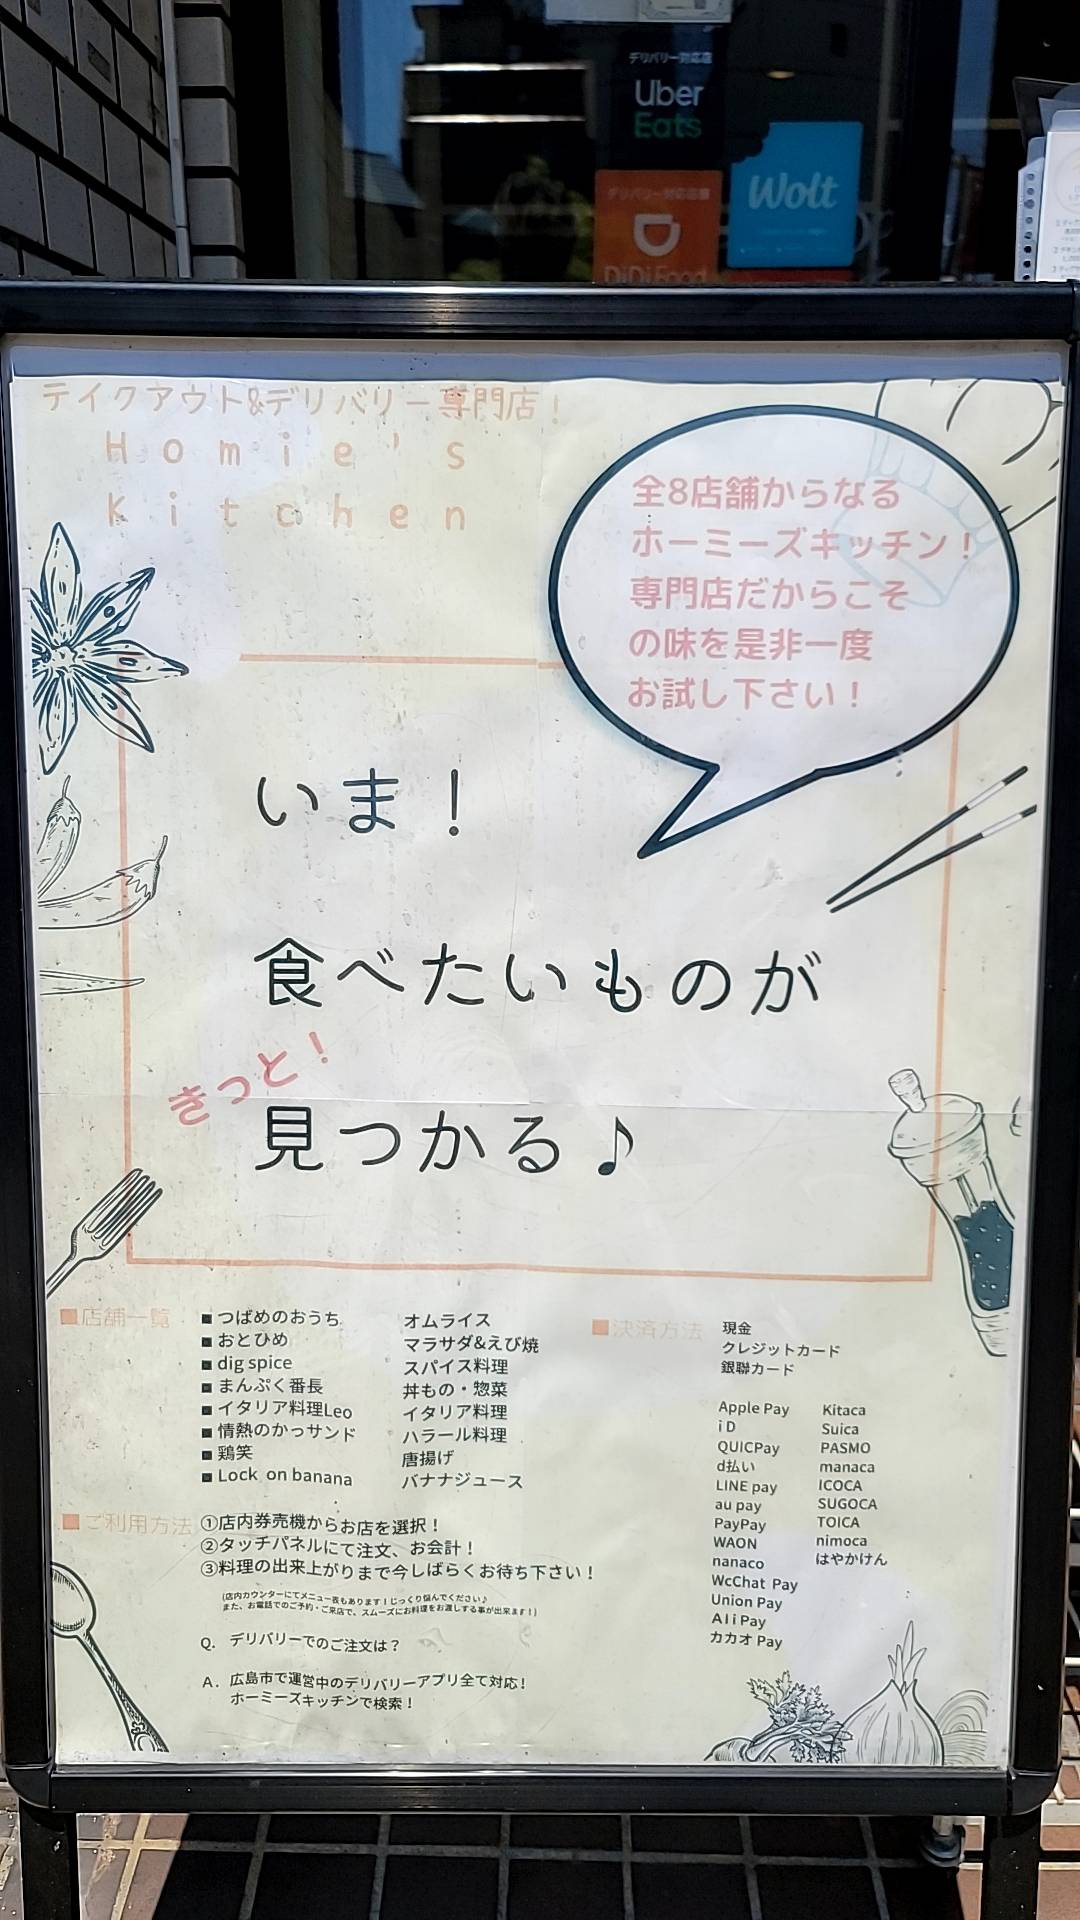 デリバリー対応店
Uber
Eats
デリバリー対応店舗
DiDi Food
Wolt
テイクアウト&デリバリー専門店！
Homie's
Kitchen
全8店舗からなる
ホーミーズキッチン！
専門店だからこそ
の味を是非一度
お試し下さい！
いま！
食べたいものが
きっと！
見つかる♪
■店舗一覧
■つばめのおうち オムライス
■おとひめ マラサダ&えび焼
■dig spice スパイス料理
■まんぷく番長 丼もの・惣菜
■イタリア料理Leo イタリア料理
■情熱のかっサンド ハラール料理
■鶏笑 唐揚げ
■Lock on banana バナナジュース
■ご利用方法
①店内券売機からお店を選択！
②タッチパネルにて注文、お会計！
③料理の出来上がりまで今しばらくお待ち下さい！
(店内カウンターにてメニュー表もあります！じっくり悩んでください♪
また、お電話でのご予約・ご来店で、スムーズにお料理をお渡しする事が出来ます！)
Q. デリバリーでのご注文は？
A. 広島市で運営中のデリバリーアプリ全て対応！
ホーミーズキッチンで検索！
■決済方法
現金
クレジットカード
銀聯カード
Apple Pay
iD
QUICPay
d払い
LINE pay
au pay
PayPay
WAON
nanaco
WcChat Pay
Union Pay
AliPay
カカオ Pay
Kitaca
Suica
PASMO
manaca
ICOCA
SUGOCA
TOICA
nimoca
はやかけん